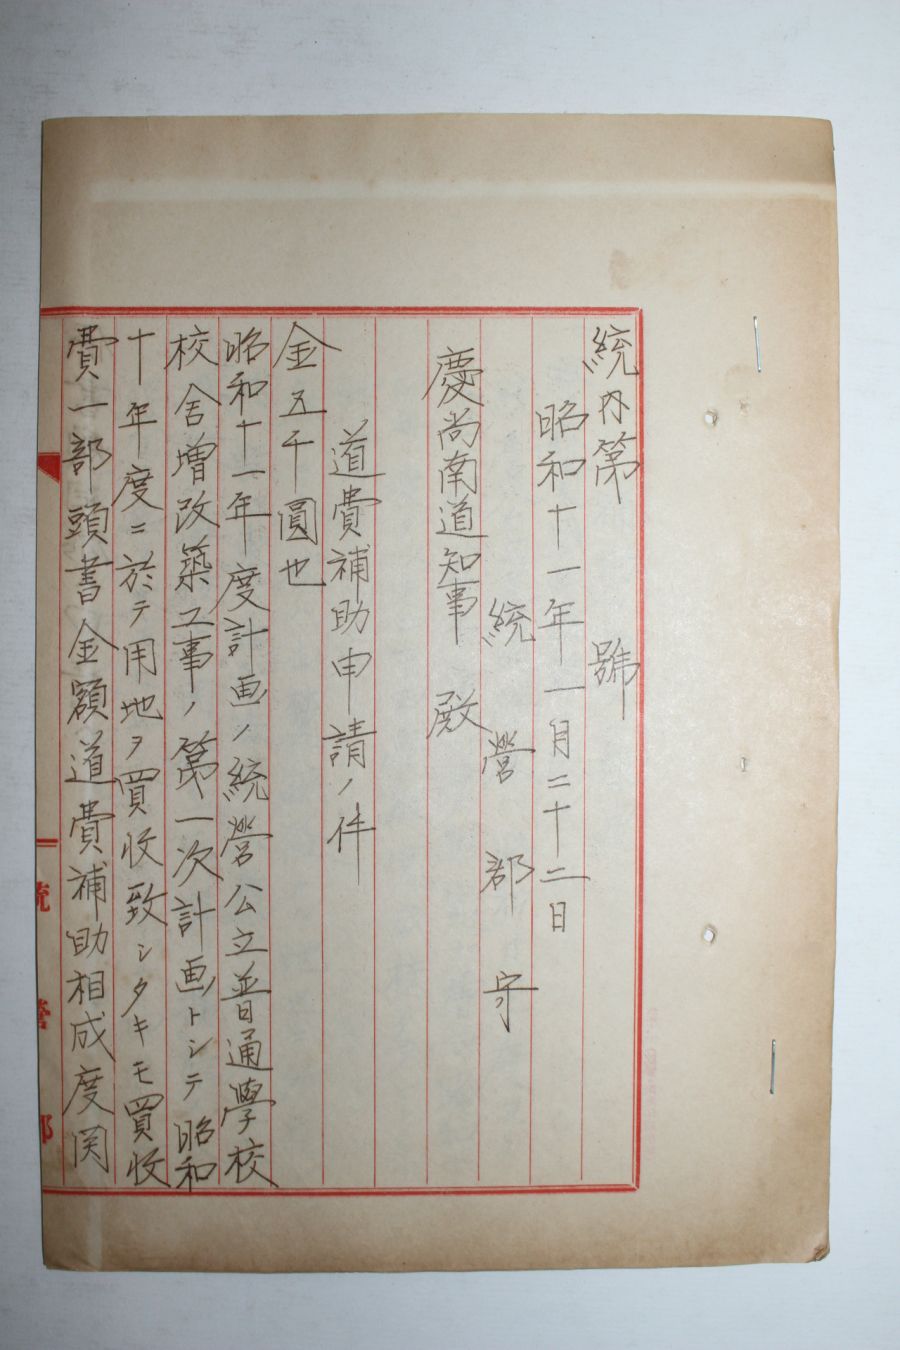 統内第　　　號
昭和十一年一月二十二日
統營郡守
慶尚南道知事　殿
道費補助申請ノ件
金五千圓也
昭和十一年度計画ノ統營公立普通學校
校舍增改築工事ノ第一次計画トシテ昭和
十年度ニ於テ用地ヲ買收致シタキモ買收
費一部頭書金額道費補助相成度関
統營郡